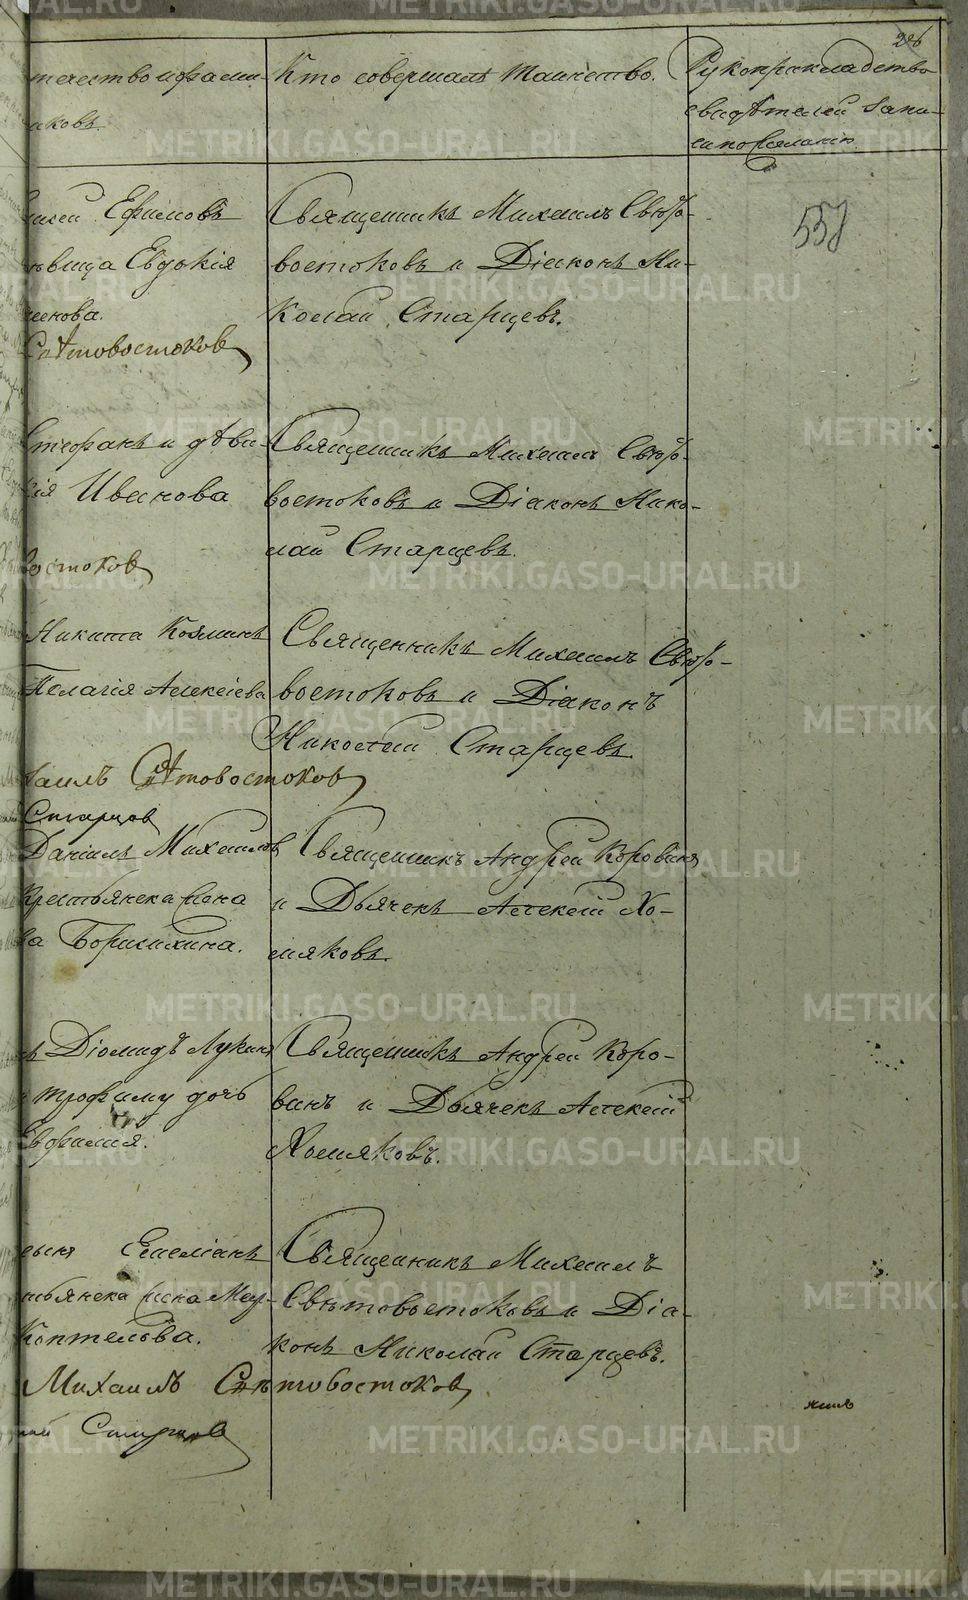 226
течество и фами-
Кто совершалъ таинство.
Рукоприкладство
свидѣтелей запи-
си по желанію
ликовъ.
557
Ефимовъ
вица Евдокія
Священникъ Михаилъ Свѣто-
востоковъ и Діаконъ Ни-
колай Старцевъ.
Свѣтовостоковъ
Стефанъ и дѣви-
Иванова
востоков
Священникъ Михаилъ Свѣто-
востоковъ и Діаконъ Нико-
лай Старцевъ.
Никита Козминъ
Пелагія Алексіева
Священникъ Михаилъ Свѣто-
востоковъ и Діаконъ
Николай Старцевъ
хаилъ Свѣтовостоков
Старцов
Даніилъ Михаилов
крестьянска сына
Борисихина.
Священникъ Андрей Коровинъ
и Дьячекъ Алексій Хо-
мяковъ.
Діомидъ Лукинъ
трофиму дочь
Евфимія.
Священникъ Андрей Коро-
винъ и Дьячекъ Алексій
Хомяковъ.
Емеліанъ
Коптелова.
Священникъ Михаилъ
Свѣтовостоковъ и Діа-
конъ Николай Старцевъ.
Михаилъ Свѣтовостоков
Старцов
METRIKI.GASO-URAL.RU